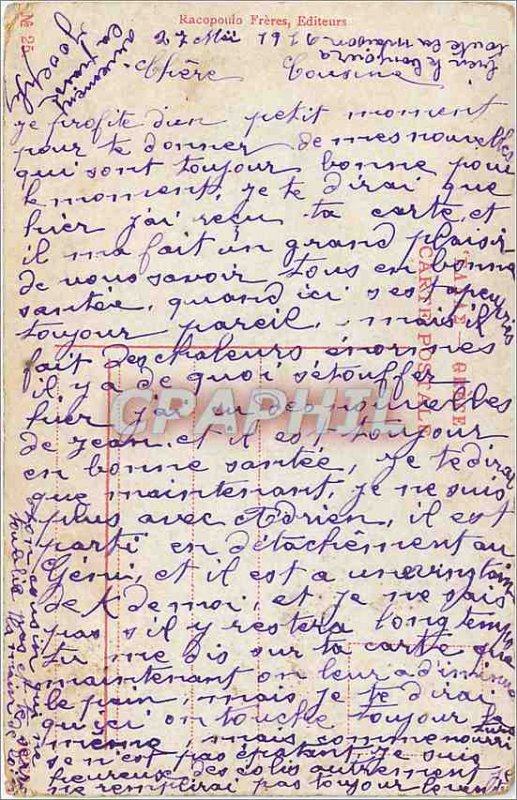 Racopoulo Frères, Editeurs
Nº 25
27 Mai 1916
Chère Cousine
je profite d'un petit moment
pour te donner de mes nouvelles
qui sont toujour bonne pour
le moment, je te dirai que
hier j'ai reçu ta carte, et
il ma fait un grand plaisir
de vous savoir tous en bonne
santée, quand ici s'est apeuprès
toujour pareil, mais il
fait des chaleurs énormes
il y a de quoi s'étouffer
hier j'ai eu des nouvelles
de Jean, et il est toujour
en bonne santée, je te dirai
que maintenant, je ne suis
plus avec Adrien, il est
parti en détachêment au
Géni, et il est a une vingtaine
de K de moi, et je ne sais
pas s'il y restera longtemps
tu me dis sur ta carte que
maintenant on leur a diminué
le pain, mais je te dirai
qu'ici on touche toujour la
même, mais comme nourriture
se n'est pas épatant, je suis
heureux des colis autrement
ne remplirai pas toujour le ventre
ton cousin qui ne
t'oublie pas et te serre
la main de loin
bien le bonjour a
toute la maison
Joseph
CARTE POSTALE
CRAPHIL